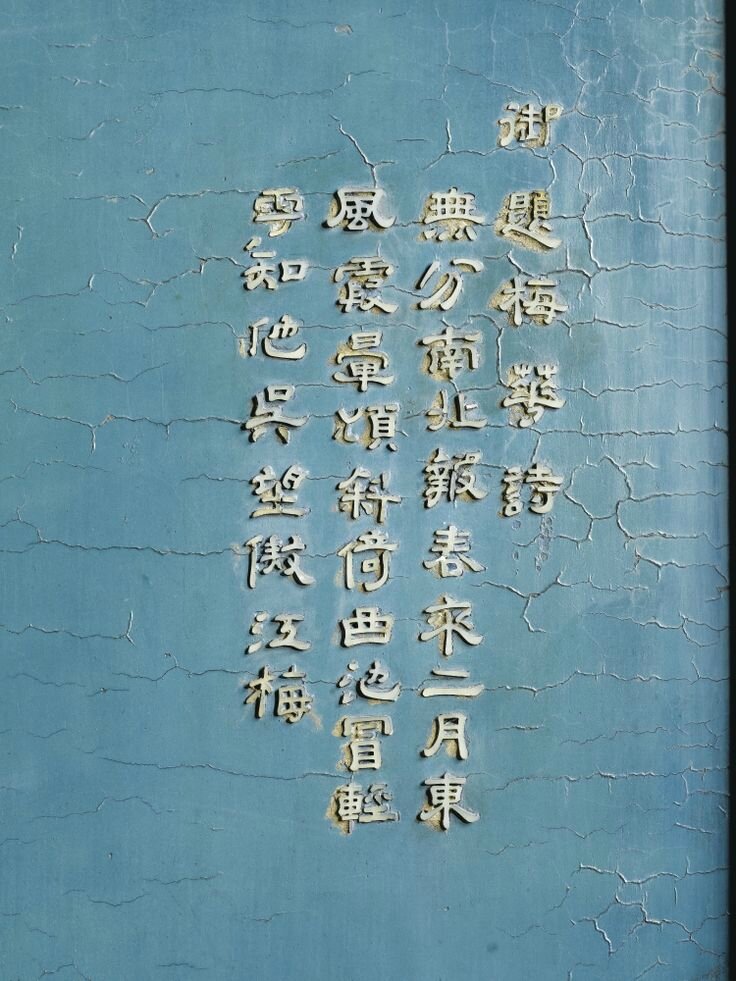 御題梅華詩
無分南北報春來二月東
風霞暈斜倚曲池冒輕
雪知他吳望傲江梅